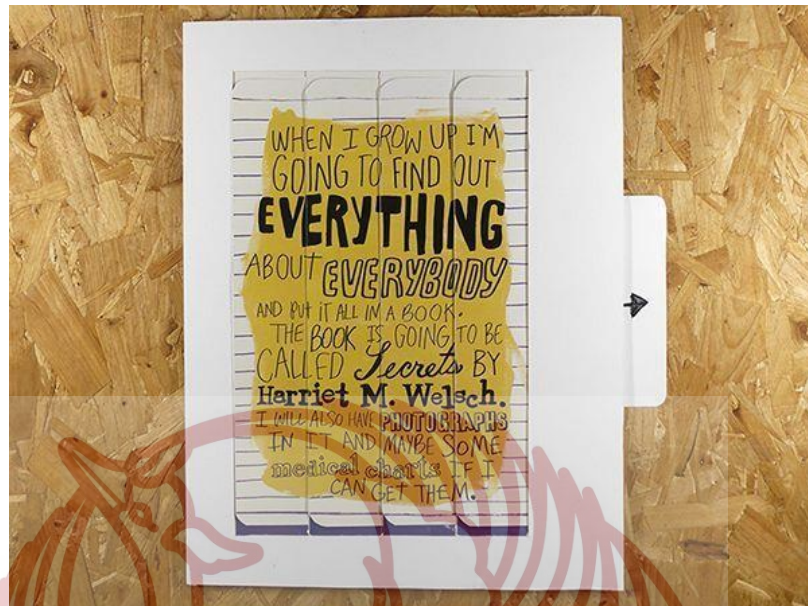 WHEN I GROW UP I'M
GOING TO FIND OUT
EVERYTHING
ABOUT EVERYBODY
AND PUT IT ALL IN A BOOK.
THE BOOK IS GOING TO BE
CALLED Secrets BY
Harriet M. Welsch.
I WILL ALSO HAVE PHOTOGRAPHS
IN IT AND MAYBE SOME
medical charts IF I
CAN GET THEM.